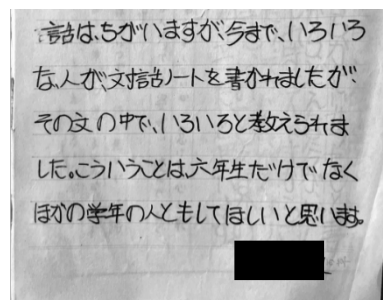 話は、ちがいますが、今まで、いろいろ
な、人が、対話ノートを書かれましたが、
その文の中で、いろいろと教えられま
した。こういうことは、六年生だけでなく
ほかの学年の人ともしてほしいと思います。